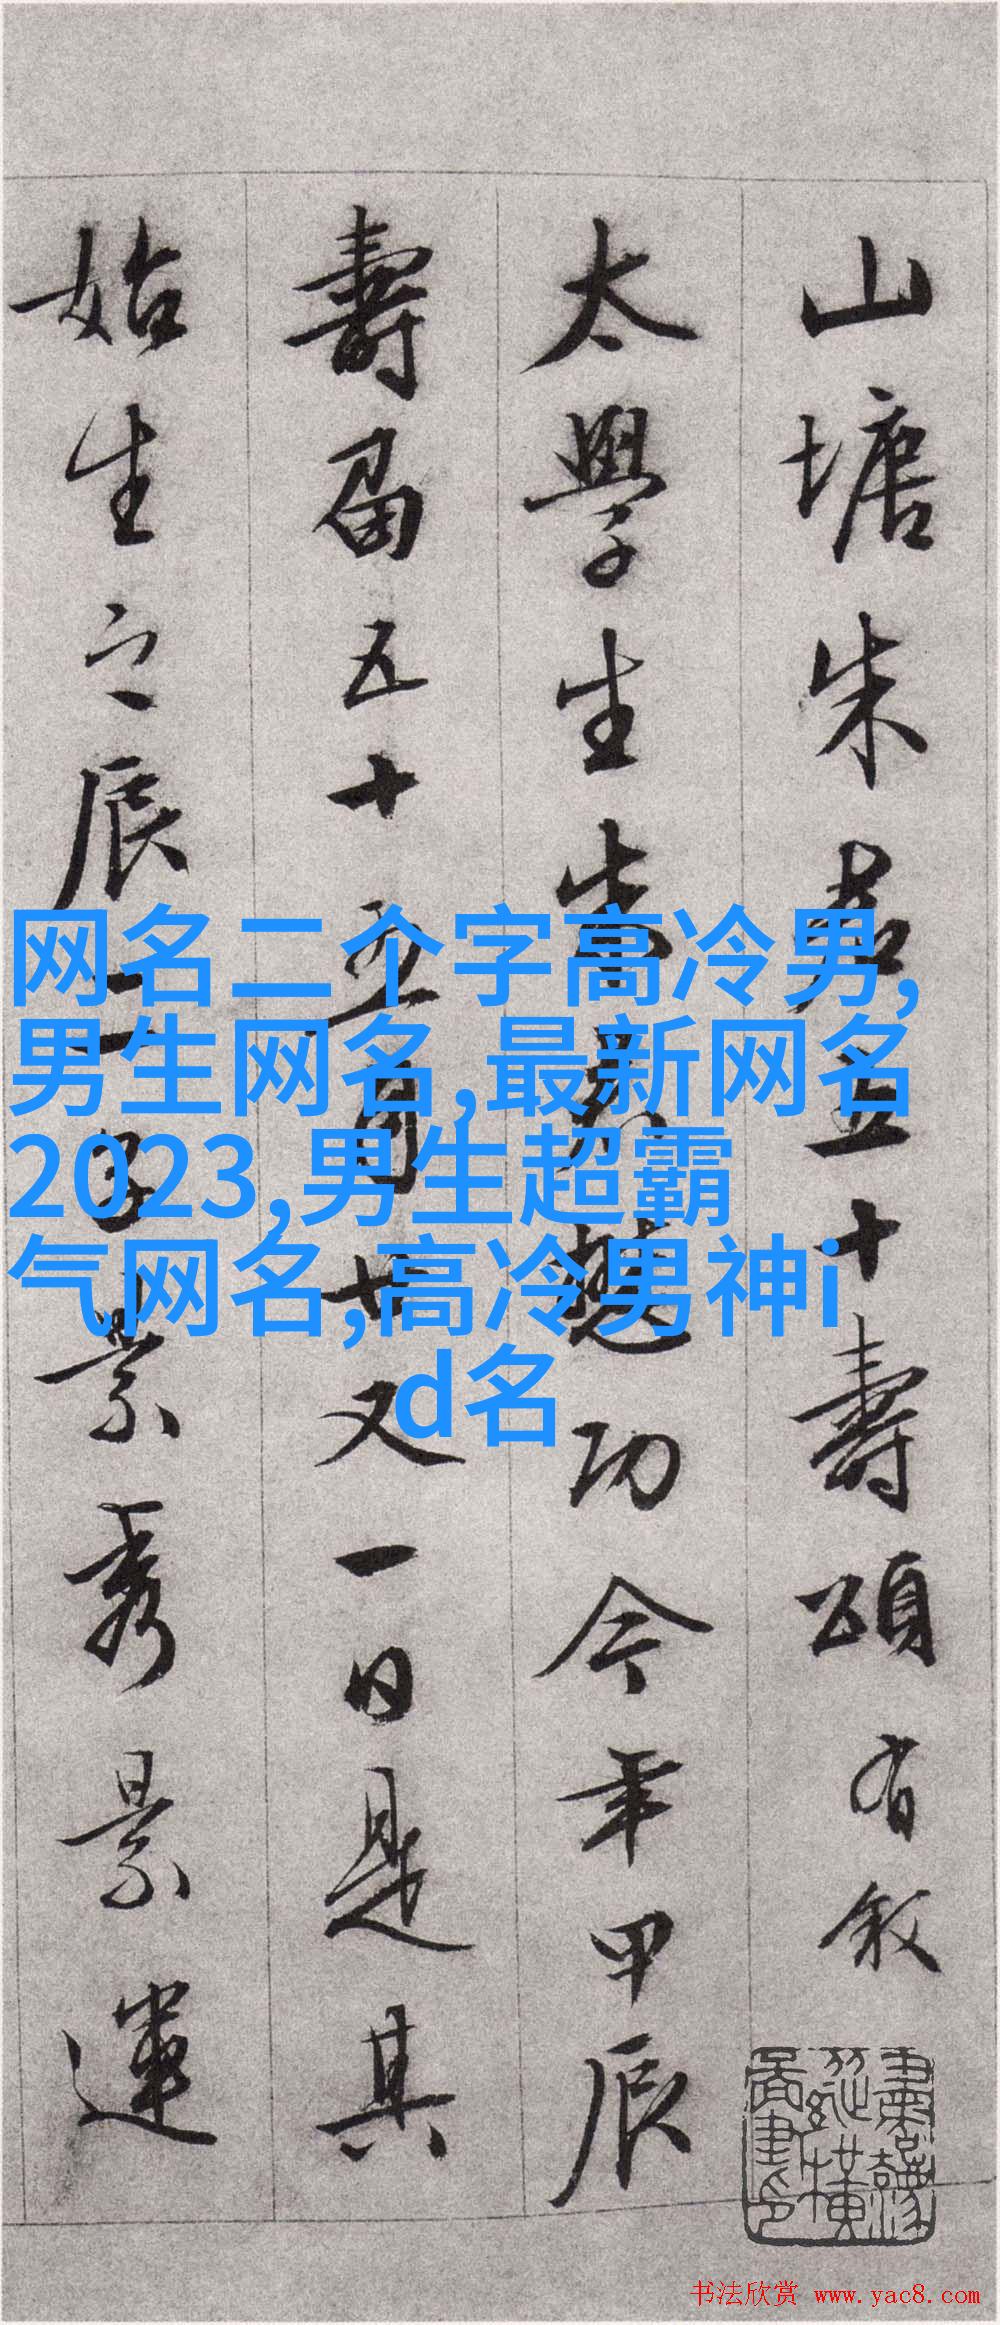 山塘朱君五十壽頌有敘
太學生朱
功今年甲辰
壽届五十
月廿又一日是其
始生之辰
景秀景運
网名二个字高冷男,
男生网名,最新网名
2023,男生超霸
气网名,高冷男神i
d名
书法欣赏 www.yac8.com